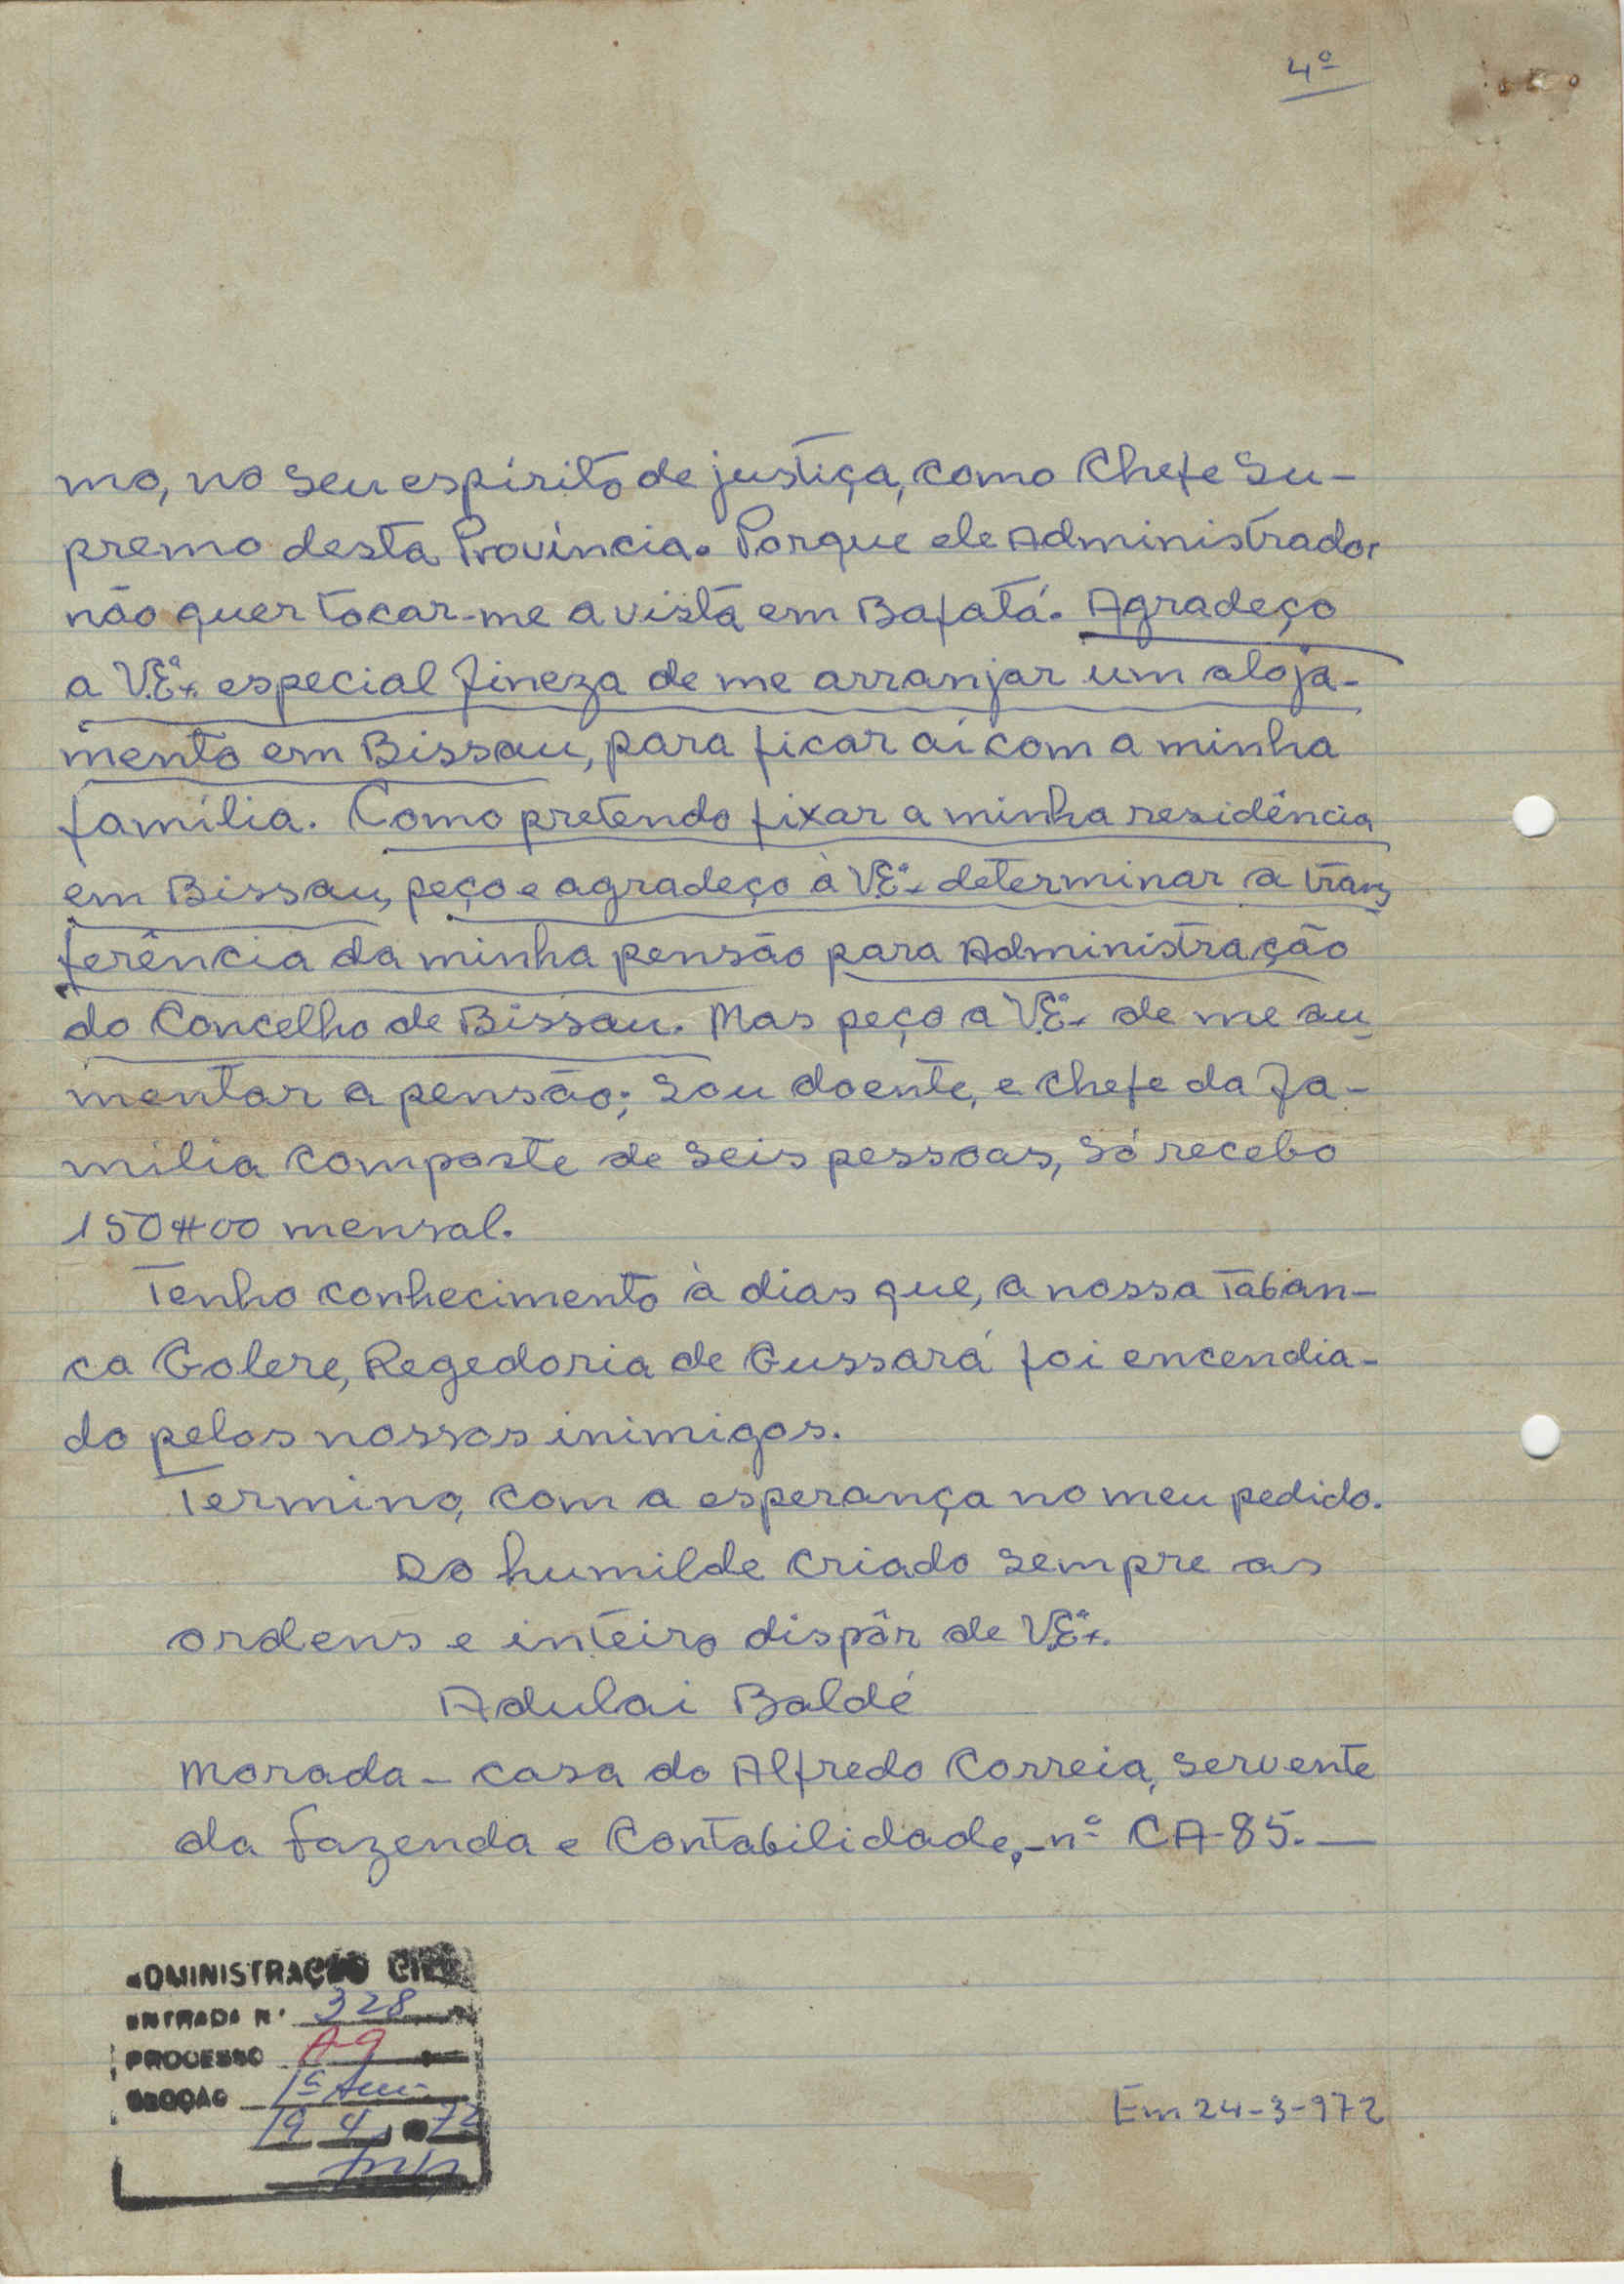 4º
mo, no seu espírito de justiça, como Chefe Su-
premo desta Província. Porque ele Administrador
não quer tocar-me a vista em Bafatá. Agradeço
a V.Exª. especial fineza de me arranjar um aloja-
mento em Bissau, para ficar aí com a minha
família. Como pretendo fixar a minha residência
em Bissau, peço e agradeço à V.Exª. determinar a trans
ferência da minha pensão para Administração
do Concelho de Bissau. Mas peço a V.Exª. de me au
mentar a pensão; sou doente, e chefe da fa-
mília composte de seis pessoas, só recebo
150$00 mensal.
Tenho conhecimento à dias que, a nossa Taban-
ca Golere, Regedoria de Gussará foi encendia-
do pelos nossos inimigos.
Termino, com a esperança no meu pedido.
Do humilde criado sempre as
ordens e inteiro dispôr de V.Exª.
Adulai Baldé
Morada - casa do Alfredo Correia, servente
da fazenda e Contabilidade,-nº CA-85.—
ADMINISTRAÇÃO CIVIL
ENTRADA N.º 328
PROCESSO A-9
SECÇÃO 1ª
19 4 72
Em 24-3-972